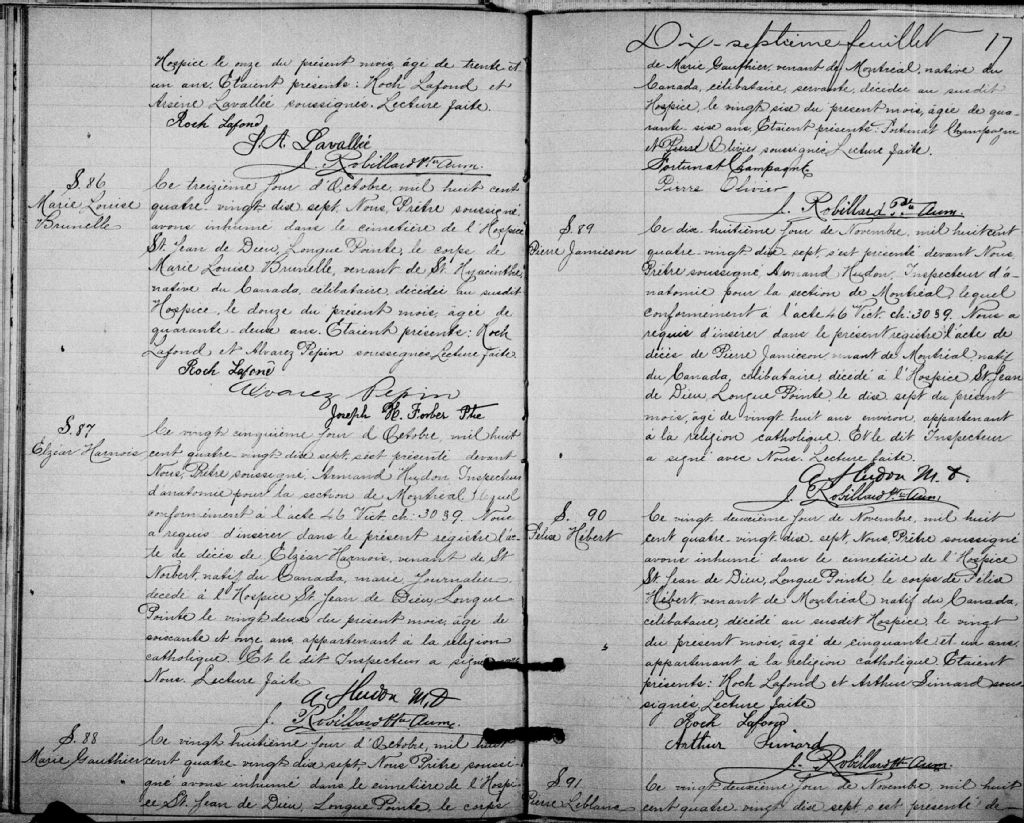 Hospice le onze du présent mois, âgé de trente et
un ans. Etaient présents: Roch Lafond et
Arsène Lavallée soussignés. Lecture faite.
Roch Lafond
J. A. Lavallée
J. Robillard Ptre Aum.
S. 86
Marie Louise
Brunelle
Ce treizième jour d'Octobre, mil huit cent
quatre-vingt dix sept, Nous, Prêtre soussigné,
avons inhumé dans le cimetière de l'Hospice
St Jean de Dieu, Longue Pointe, le corps de
Marie Louise Brunelle, venant de St. Hyacinthe,
native du Canada, célibataire, décédée au susdit
Hospice, le douze du présent mois, âgée de
quarante deux ans. Etaient présents: Roch
Lafond et Alvarez Pepin soussignés Lecture faite.
Roch Lafond
Alvarez Pepin
Joseph H. Forber Ptre
S. 87
Elzéar Harnois
Ce vingt cinquième jour d'Octobre, mil huit
cent quatre-vingt dix sept, s'est présenté devant
Nous, Prêtre soussigné, Armand Hudon, Inspecteur
d'anatomie pour la section de Montréal, lequel
conformément à l'acte 46 Vict. ch: 30 39. Nous
a requis d'insérer dans le présent registre l'ac-
te de décès de Elzéar Harnois, venant de St
Norbert, natif du Canada, marié, Journalier,
décédé à l'Hospice St Jean de Dieu, Longue
Pointe le vingt deux du présent mois, âgé de
soixante et onze ans, appartenant à la religion
catholique. Et le dit Inspecteur a signé avec
Nous. Lecture faite
A. Hudon M.D
J. Robillard Ptre Aum.
S. 88
Marie Gauthier
Ce vingt huitième jour d'Octobre, mil huit
cent quatre-vingt dix sept Nous Prêtre soussi-
gné avons inhumé dans le cimetière de l'Hospi-
ce St. Jean de Dieu, Longue Pointe, le corps
Dix-septième feuillet 17
de Marie Gauthier, venant de Montréal, native du
Canada, célibataire, servante, décédée au susdit
Hospice, le vingt six du présent mois, âgée de qua-
rante-six ans, Etaient présents: Fortunat Champagne
et Pierre Olivier soussignés, Lecture faite.
Fortunat Champagne
Pierre Olivier
J. Robillard Ptre Aum.
S. 89
Pierre Jamieson
Ce dix huitième jour de Novembre, mil huit cent
quatre-vingt dix sept, s'est présenté devant Nous,
Prêtre soussigné, Armand Hudon, Inspecteur d'a-
natomie pour la section de Montréal, lequel
conformément à l'acte 46 Vict. ch: 30 39. Nous a
requis d'insérer dans le présent registre l'acte de
décès de Pierre Jamieson venant de Montréal, natif
du Canada, célibataire, décédé à l'Hospice St. Jean
de Dieu, Longue Pointe, le dix sept du présent
mois, âgé de vingt huit ans environ, appartenant
à la religion catholique. Et le dit Inspecteur
a signé avec Nous. Lecture faite.
A. Hudon M.D.
J. Robillard Ptre Aum.
S. 90
Félix Hébert
Ce vingt deuxième jour de Novembre, mil huit
cent quatre-vingt dix sept, Nous Prêtre soussigné
avons inhumé dans le cimetière de l'Hospice
St Jean de Dieu, Longue Pointe le corps de Félix
Hébert, venant de Montréal natif du Canada,
célibataire, décédé au susdit Hospice, le vingt
du présent mois, âgé de cinquante et un ans,
appartenant à la religion catholique Etaient
présents: Roch Lafond et Arthur Simard sous-
signés, Lecture faite
Roch Lafond
Arthur Simard
J. Robillard Ptre Aum.
S. 91
Pierre Leblanc
Ce vingt deuxième jour de Novembre, mil huit
cent quatre vingt dix sept, s'est présenté de-